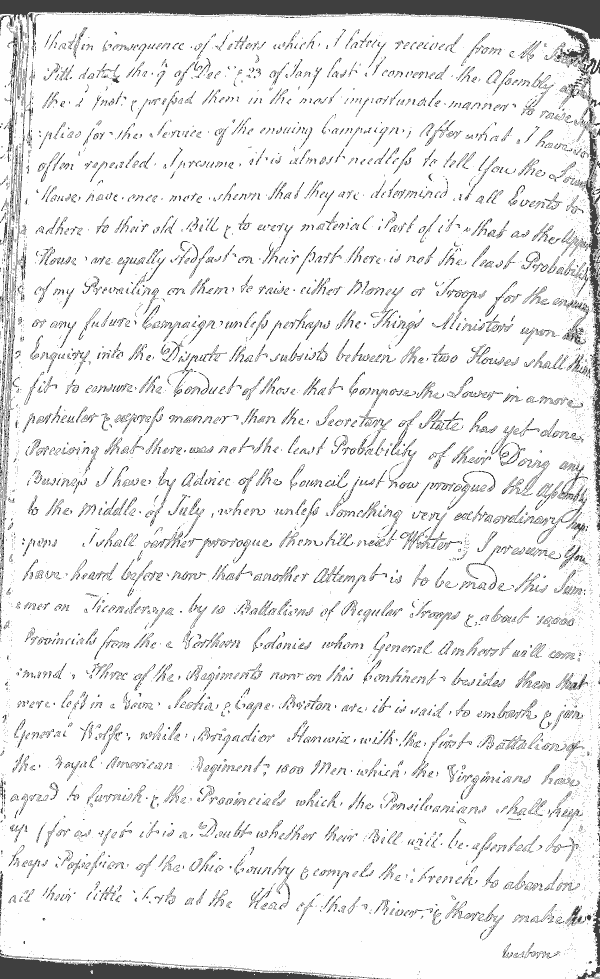 that in Consequence of Letters which I lately received from Mr
Pitt dated the 9 of Decr & 23 of Jany last I convened the Assembly
the 2 Inst & pressed them in the most importunate manner to raise
:plies for the Service of the ensuing Campaign; After what I have so
often repeated I presume it is almost needless to tell You the Lower
House have once more shewn that they are determined at all Events to
adhere to their old Bill & to every material Part of it & that as the Upper
House are equally stedfast on their part there is not the least Probability
of my Prevailing on them to raise either Money or Troops for the ensuing
or any future Campaign unless perhaps the Kings Ministers upon
Enquiry into the Dispute that subsists between the two Houses shall think
fit to censure the Conduct of those that Compose the Lower in a more
particular & express manner than the Secretary of State has yet done,
Perceiving that there was not the least Probability of their Doing any
Business I have by Advice of the Council just now prorogued the Assembly
to the Middle of July, when unless something very extraordinary hap
:pens I shall farther prorogue them till next Winter; I presume You
have heard before now that another Attempt is to be made this Sum:
:mer on Ticonderoga by 10 Battalions of Regular Troops & about 10,000
Provincials from the Northern Colonies whom General Amherst will com:
:mand, Three of the Regiments now on this Continent besides them that
were left in Nova Scotia & Cape Breton are it is said to embark & join
General Wolfe, while Brigadier Stanwix with the first Battalion of
the Royal American Regiment, 1000 Men which the Virginians have
agreed to furnish & the Provincials which the Pensilvanians shall keep
up (for as yet it is a Doubt whether their Bill will be assented to)
keeps Possession of the Ohio Country & compels the French to abandon
all their little Forts at the Head of that River, & thereby make the
Western